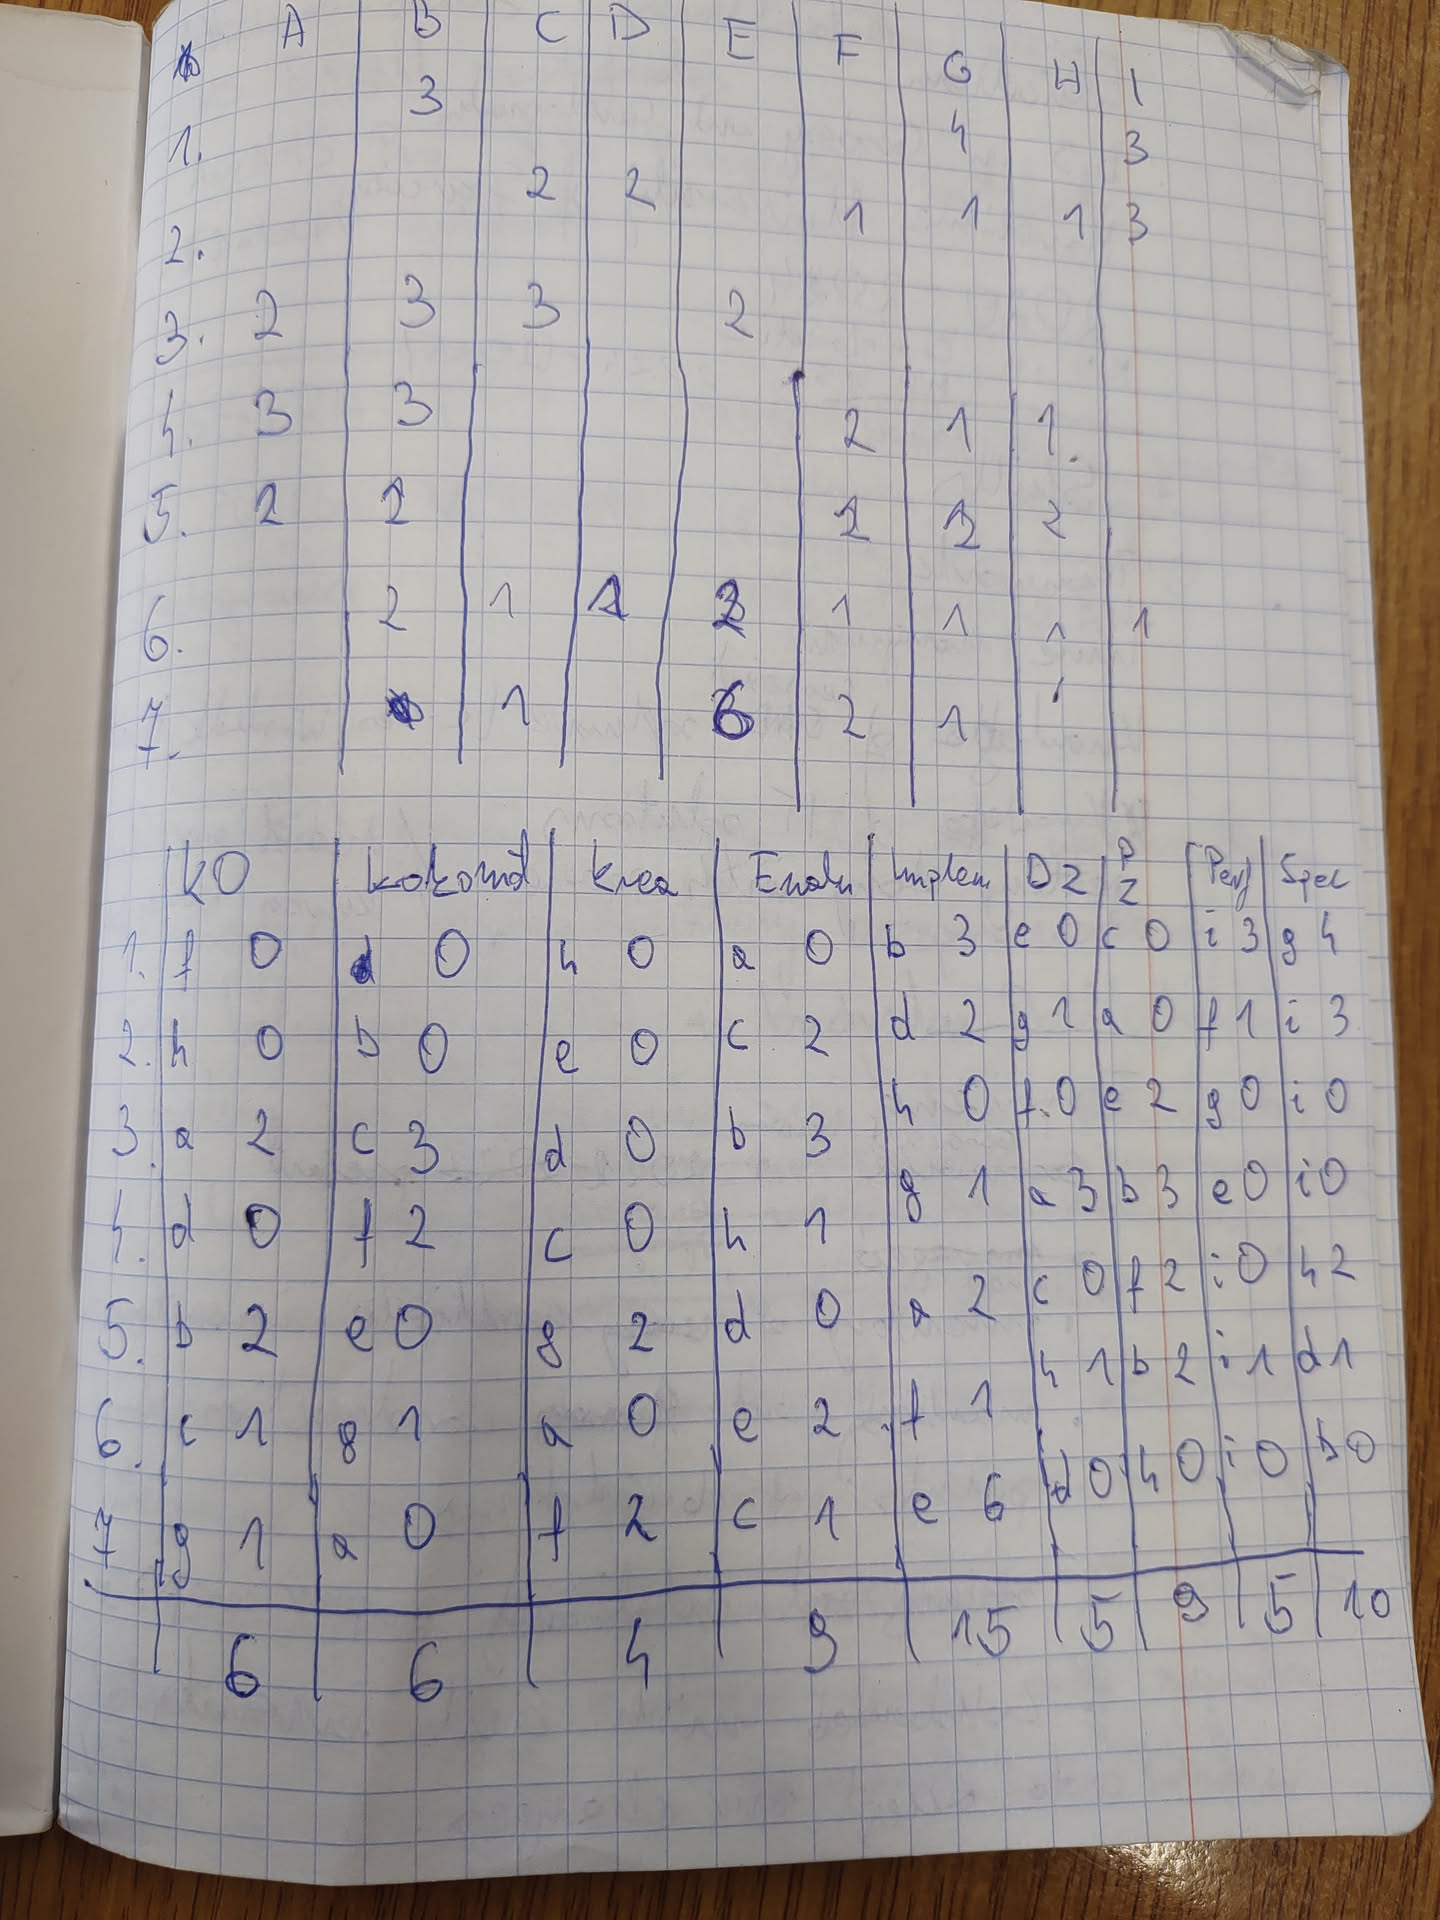 A B C D E F G H I
1. 3 4 3
2. 2 2 1 1 1 3
3. 2 3 3 2
4. 3 3 2 1 1.
5. 2 2 2 2
6. 2 1 1 1 1 1
7. 1 6 2 1 1
KO Krea Implem DZ PZ Perf Spec
1. f 0 d 0 h 0 a 0 b 3 e 0 c 0 i 3 g 4
2. h 0 b 0 e 0 c 2 d 2 g 1 a 0 f 1 i 3
3. a 2 c 3 d 0 b 3 h 0 f.0 e 2 g 0 i 0
4. d 0 f 2 c 0 h 1 g 1 a 3 b 3 e 0 i 0
5. b 2 e 0 g 2 d 0 a 2 c 0 f 2 i 0 h 2
6. c 1 g 1 a 0 e 2 f 1 h 1 b 2 i 1 d 1
7. g 1 a 0 f 2 c 1 e 6 d 0 h 0 i 0 b 0
6 6 4 9 15 5 9 5 10